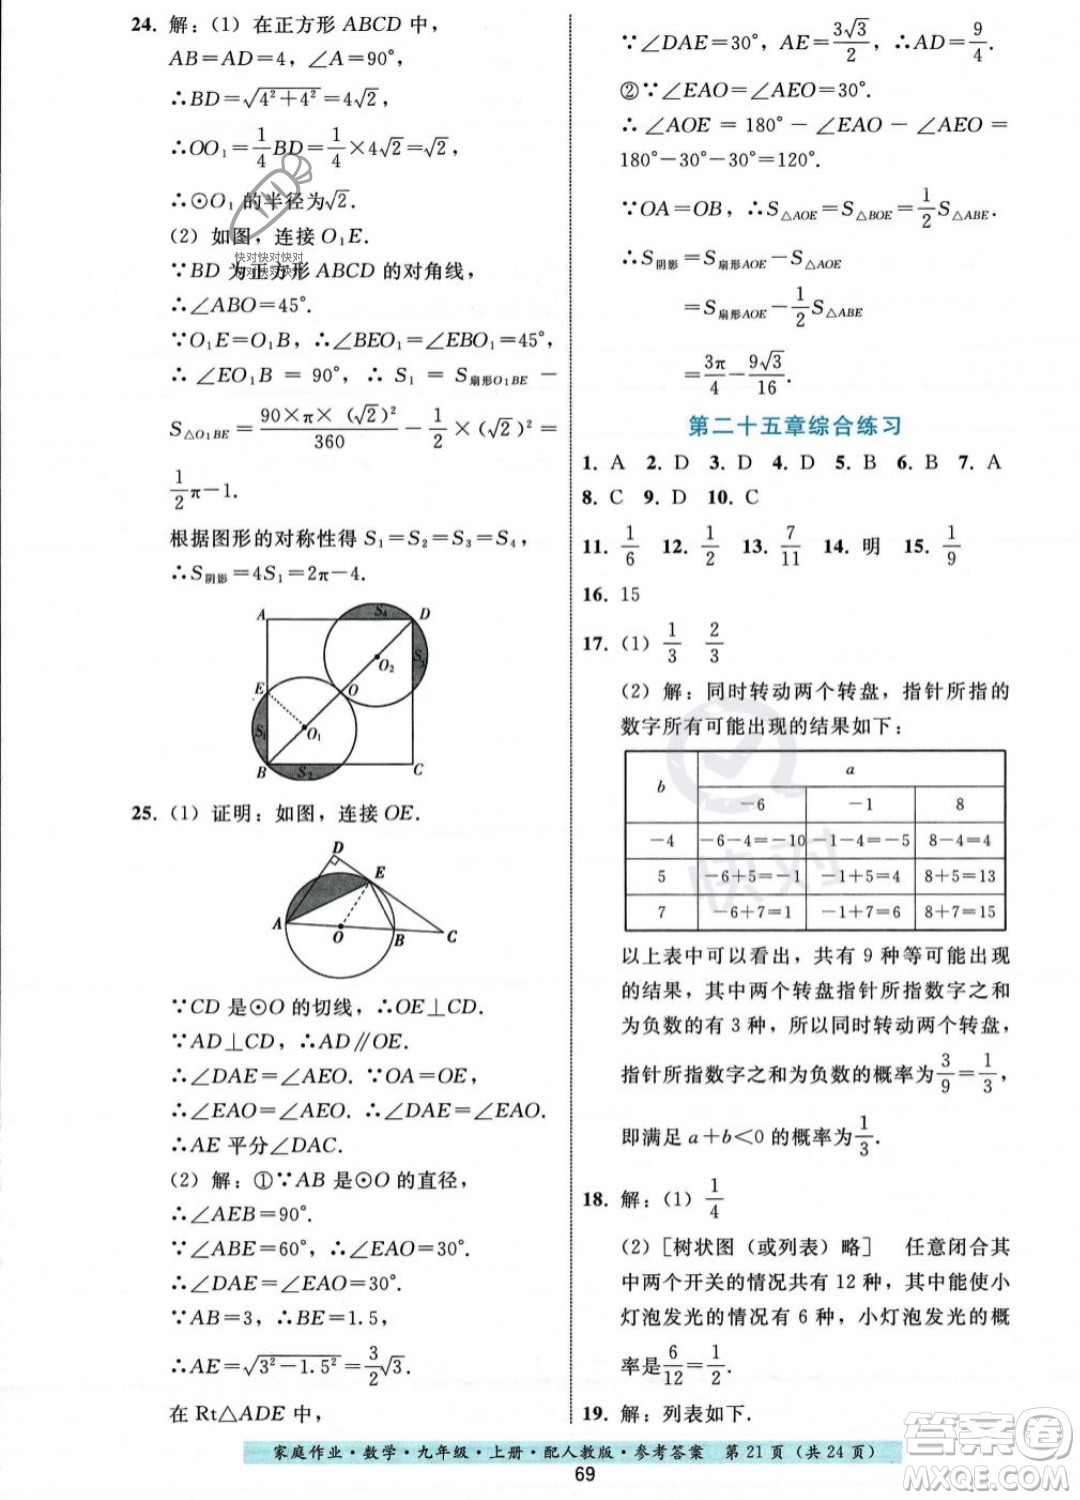 24. 解：(1) 在正方形 ABCD 中，
AB＝AD＝4，∠A＝90°，
∴BD＝√(4²＋4²)＝4√2，
∴OO₁＝1/4 BD＝1/4×4√2＝√2，
∴⊙O₁ 的半径为√2．
(2) 如图，连接 O₁E．
∵BD 为正方形 ABCD 的对角线，
∴∠ABO＝45°．
∵O₁E＝O₁B，∴∠BEO₁＝∠EBO₁＝45°，
∴∠EO₁B ＝ 90°，∴ S₁ ＝ S扇形O₁BE －
S△O₁BE＝90×π×(√2)²/360－1/2×(√2)²＝
1/2 π－1．
根据图形的对称性得 S₁＝S₂＝S₃＝S₄，
∴S阴影＝4S₁＝2π－4．
A S₄ D
O₂ S₃
E O
S₁ O₁
B S₂ C
25. (1) 证明：如图，连接 OE．
D
E
A O B C
∵CD 是⊙O 的切线，∴OE⊥CD．
∵AD⊥CD，∴AD∥OE．
∴∠DAE＝∠AEO．∵OA＝OE，
∴∠EAO＝∠AEO．∴∠DAE＝∠EAO．
∴AE 平分∠DAC．
(2) 解：①∵AB 是⊙O 的直径，
∴∠AEB＝90°．
∵∠ABE＝60°，∴∠EAO＝30°．
∴∠DAE＝∠EAO＝30°．
∵AB＝3，∴BE＝1.5．
∴AE＝√(3²－1.5²)＝3/2 √3．
在 Rt△ADE 中，
∵∠DAE＝30°，AE＝3√3/2，∴AD＝9/4．
②∵∠EAO＝∠AEO＝30°．
∴∠AOE ＝ 180° － ∠EAO － ∠AEO ＝
180°－30°－30°＝120°．
∵OA＝OB，∴S△AOE＝S△BOE＝1/2 S△ABE．
∴S阴影＝S扇形AOE－S△AOE
＝S扇形AOE－1/2 S△ABE
＝3π/4－9√3/16．
第二十五章综合练习
1. A 2. D 3. D 4. D 5. B 6. B 7. A
8. C 9. D 10. C
11. 1/6 12. 1/2 13. 7/11 14. 明 15. 1/9
16. 15
17. (1) 1/3 2/3
(2) 解：同时转动两个转盘，指针所指的
数字所有可能出现的结果如下：
b a
－6 －1 8
－4 －6－4＝－10 －1－4＝－5 8－4＝4
5 －6＋5＝－1 －1＋5＝4 8＋5＝13
7 －6＋7＝1 －1＋7＝6 8＋7＝15
以上表中可以看出，共有 9 种等可能出现
的结果，其中两个转盘指针所指数字之和
为负数的有 3 种，所以同时转动两个转盘，
指针所指数字之和为负数的概率为3/9＝1/3，
即满足 a＋b＜0 的概率为1/3．
18. 解：(1) 1/4
(2)［树状图（或列表）略］ 任意闭合其
中两个开关的情况共有 12 种，其中能使小
灯泡发光的情况有 6 种，小灯泡发光的概
率是6/12＝1/2．
19. 解：列表如下．
家庭作业·数学·九年级·上册·配人教版·参考答案 第 21 页（共 24 页）
69
快对快对快对
快对快对快对
快对
答案圈
MXQE.COM